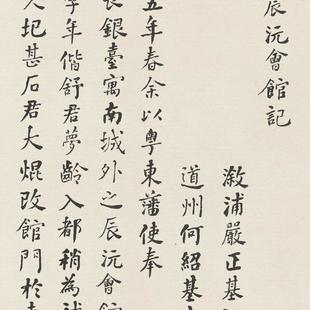 辰沅會館記
漵浦嚴正基
道州何紹基
五年春余以粵東藩使奉
銀臺寓南城外之辰沅會館
年偕舒君夢齡入都稍為
圯甚石君大焜改館門於